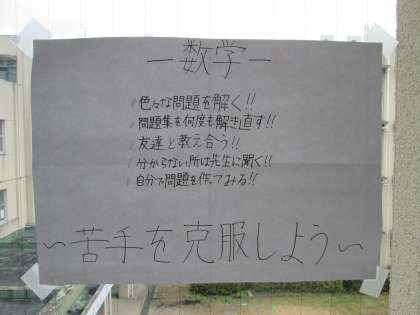 ー数学ー
色々な問題を解く!!
問題集を何度も解き直す!!
友達と教え合う!!
分からない所は先生に聞く!!
自分で問題を作ってみる!!
～苦手を克服しよう～